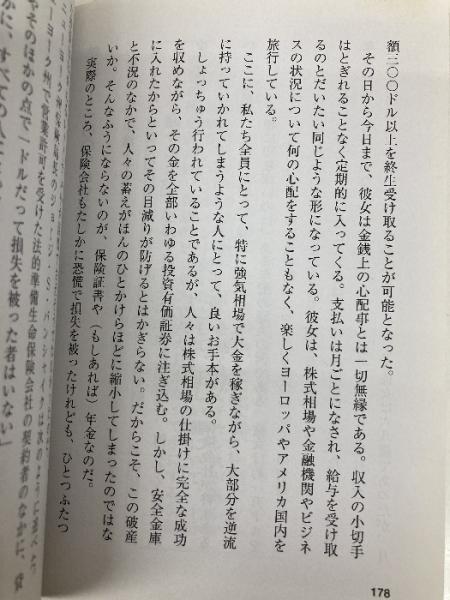 額三〇〇ドル以上を終生受け取ることが可能となった。
その日から今日まで、彼女は金銭上の心配事とは一切無縁である。収入の小切手
はとぎれることなく定期的に入ってくる。支払いは月ごとになされ、給与を受け取
るのとだいたい同じような形になっている。彼女は、株式相場や金融機関やビジネ
スの状況について何の心配をすることもなく、楽しくヨーロッパやアメリカ国内を
旅行している。
ここに、私たち全員にとって、特に強気相場で大金を稼ぎながら、大部分を逆流
に持っていかれてしまうような人にとって、良いお手本がある。
しょっちゅう行われていることであるが、人々は株式相場の仕掛けに完全な成功
を収めながら、その金を全部いわゆる投資有価証券に注ぎ込む。しかし、安全金庫
に入れたからといってその目減りが防げるとはかぎらない。だからこそ、この破産
と不況のなかで、人々の蓄えがほんのひとかけらほどに縮小してしまったのではな
いか。そんなふうにならないのが、保険証書や（もしあれば）年金なのだ。
実際のところ、保険会社もたしかに恐慌で損失を被ったけれども、ひとつふたつ
ヨーク州で営業許可を受けた法的準備生命保険会社の契約者のなかに、
やそのほかの点で一ドルだって損失を被った者はいない」
に、すべての
178